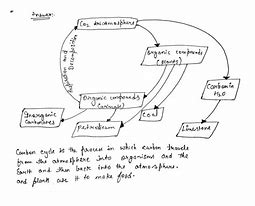 Answer:
CO2 in atmosphere
Respiration and
Decomposition
Organic compounds
(plants)
Carbon in
H2O
Organic compounds
(animals)
Inorganic
Carbonates
Petroleum
Coal
Limestone
Carbon cycle is the process in which carbon travels
from the atmosphere into organisms and the
Earth and then back into the atmosphere.
and plants use it to make food.